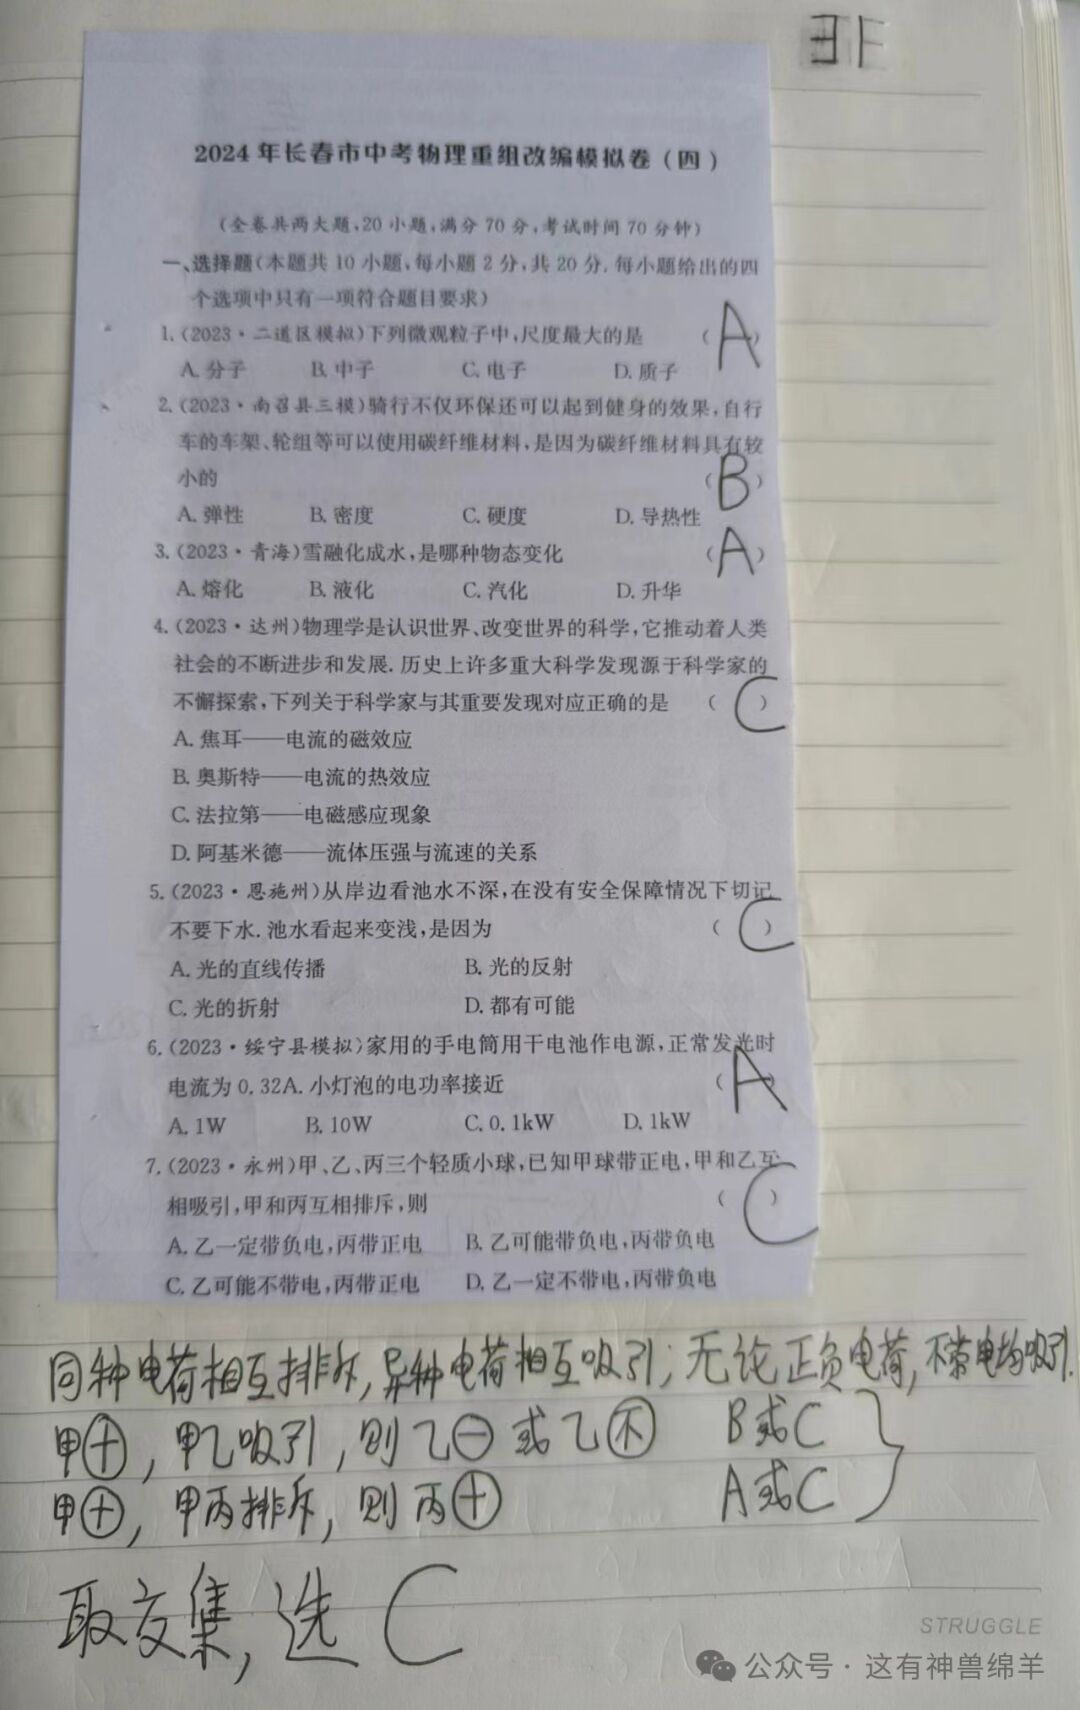 2024年长春市中考物理重组改编模拟卷(四)
(全卷共两大题,20小题,满分70分,考试时间70分钟)
一、选择题(本题共10小题,每小题2分,共20分.每小题给出的四
个选项中只有一项符合题目要求)
1.(2023·二道区模拟)下列微观粒子中,尺度最大的是 (A)
A.分子 B.中子 C.电子 D.质子
2.(2023·南召县三模)骑行不仅环保还可以起到健身的效果,自行
车的车架、轮组等可以使用碳纤维材料,是因为碳纤维材料具有较
小的 (B)
A.弹性 B.密度 C.硬度 D.导热性
3.(2023·青海)雪融化成水,是哪种物态变化 (A)
A.熔化 B.液化 C.汽化 D.升华
4.(2023·达州)物理学是认识世界、改变世界的科学,它推动着人类
社会的不断进步和发展.历史上许多重大科学发现源于科学家的
不懈探索,下列关于科学家与其重要发现对应正确的是 (C)
A.焦耳——电流的磁效应
B.奥斯特——电流的热效应
C.法拉第——电磁感应现象
D.阿基米德——流体压强与流速的关系
5.(2023·恩施州)从岸边看池水不深,在没有安全保障情况下切记
不要下水.池水看起来变浅,是因为 (C)
A.光的直线传播 B.光的反射
C.光的折射 D.都有可能
6.(2023·绥宁县模拟)家用的手电筒用干电池作电源,正常发光时
电流为0.32A.小灯泡的电功率接近 (A)
A.1W B.10W C.0.1kW D.1kW
7.(2023·永州)甲、乙、丙三个轻质小球,已知甲球带正电,甲和乙互
相吸引,甲和丙互相排斥,则 (C)
A.乙一定带负电,丙带正电 B.乙可能带负电,丙带负电
C.乙可能不带电,丙带正电 D.乙一定不带电,丙带负电
同种电荷相互排斥,异种电荷相互吸引;无论正负电荷,不带电均吸引.
甲⊕,甲乙吸引,则乙⊖或乙不 B或C
甲⊕,甲丙排斥,则丙⊕ A或C
取交集,选C
STRUGGLE
公众号·这有神兽绵羊